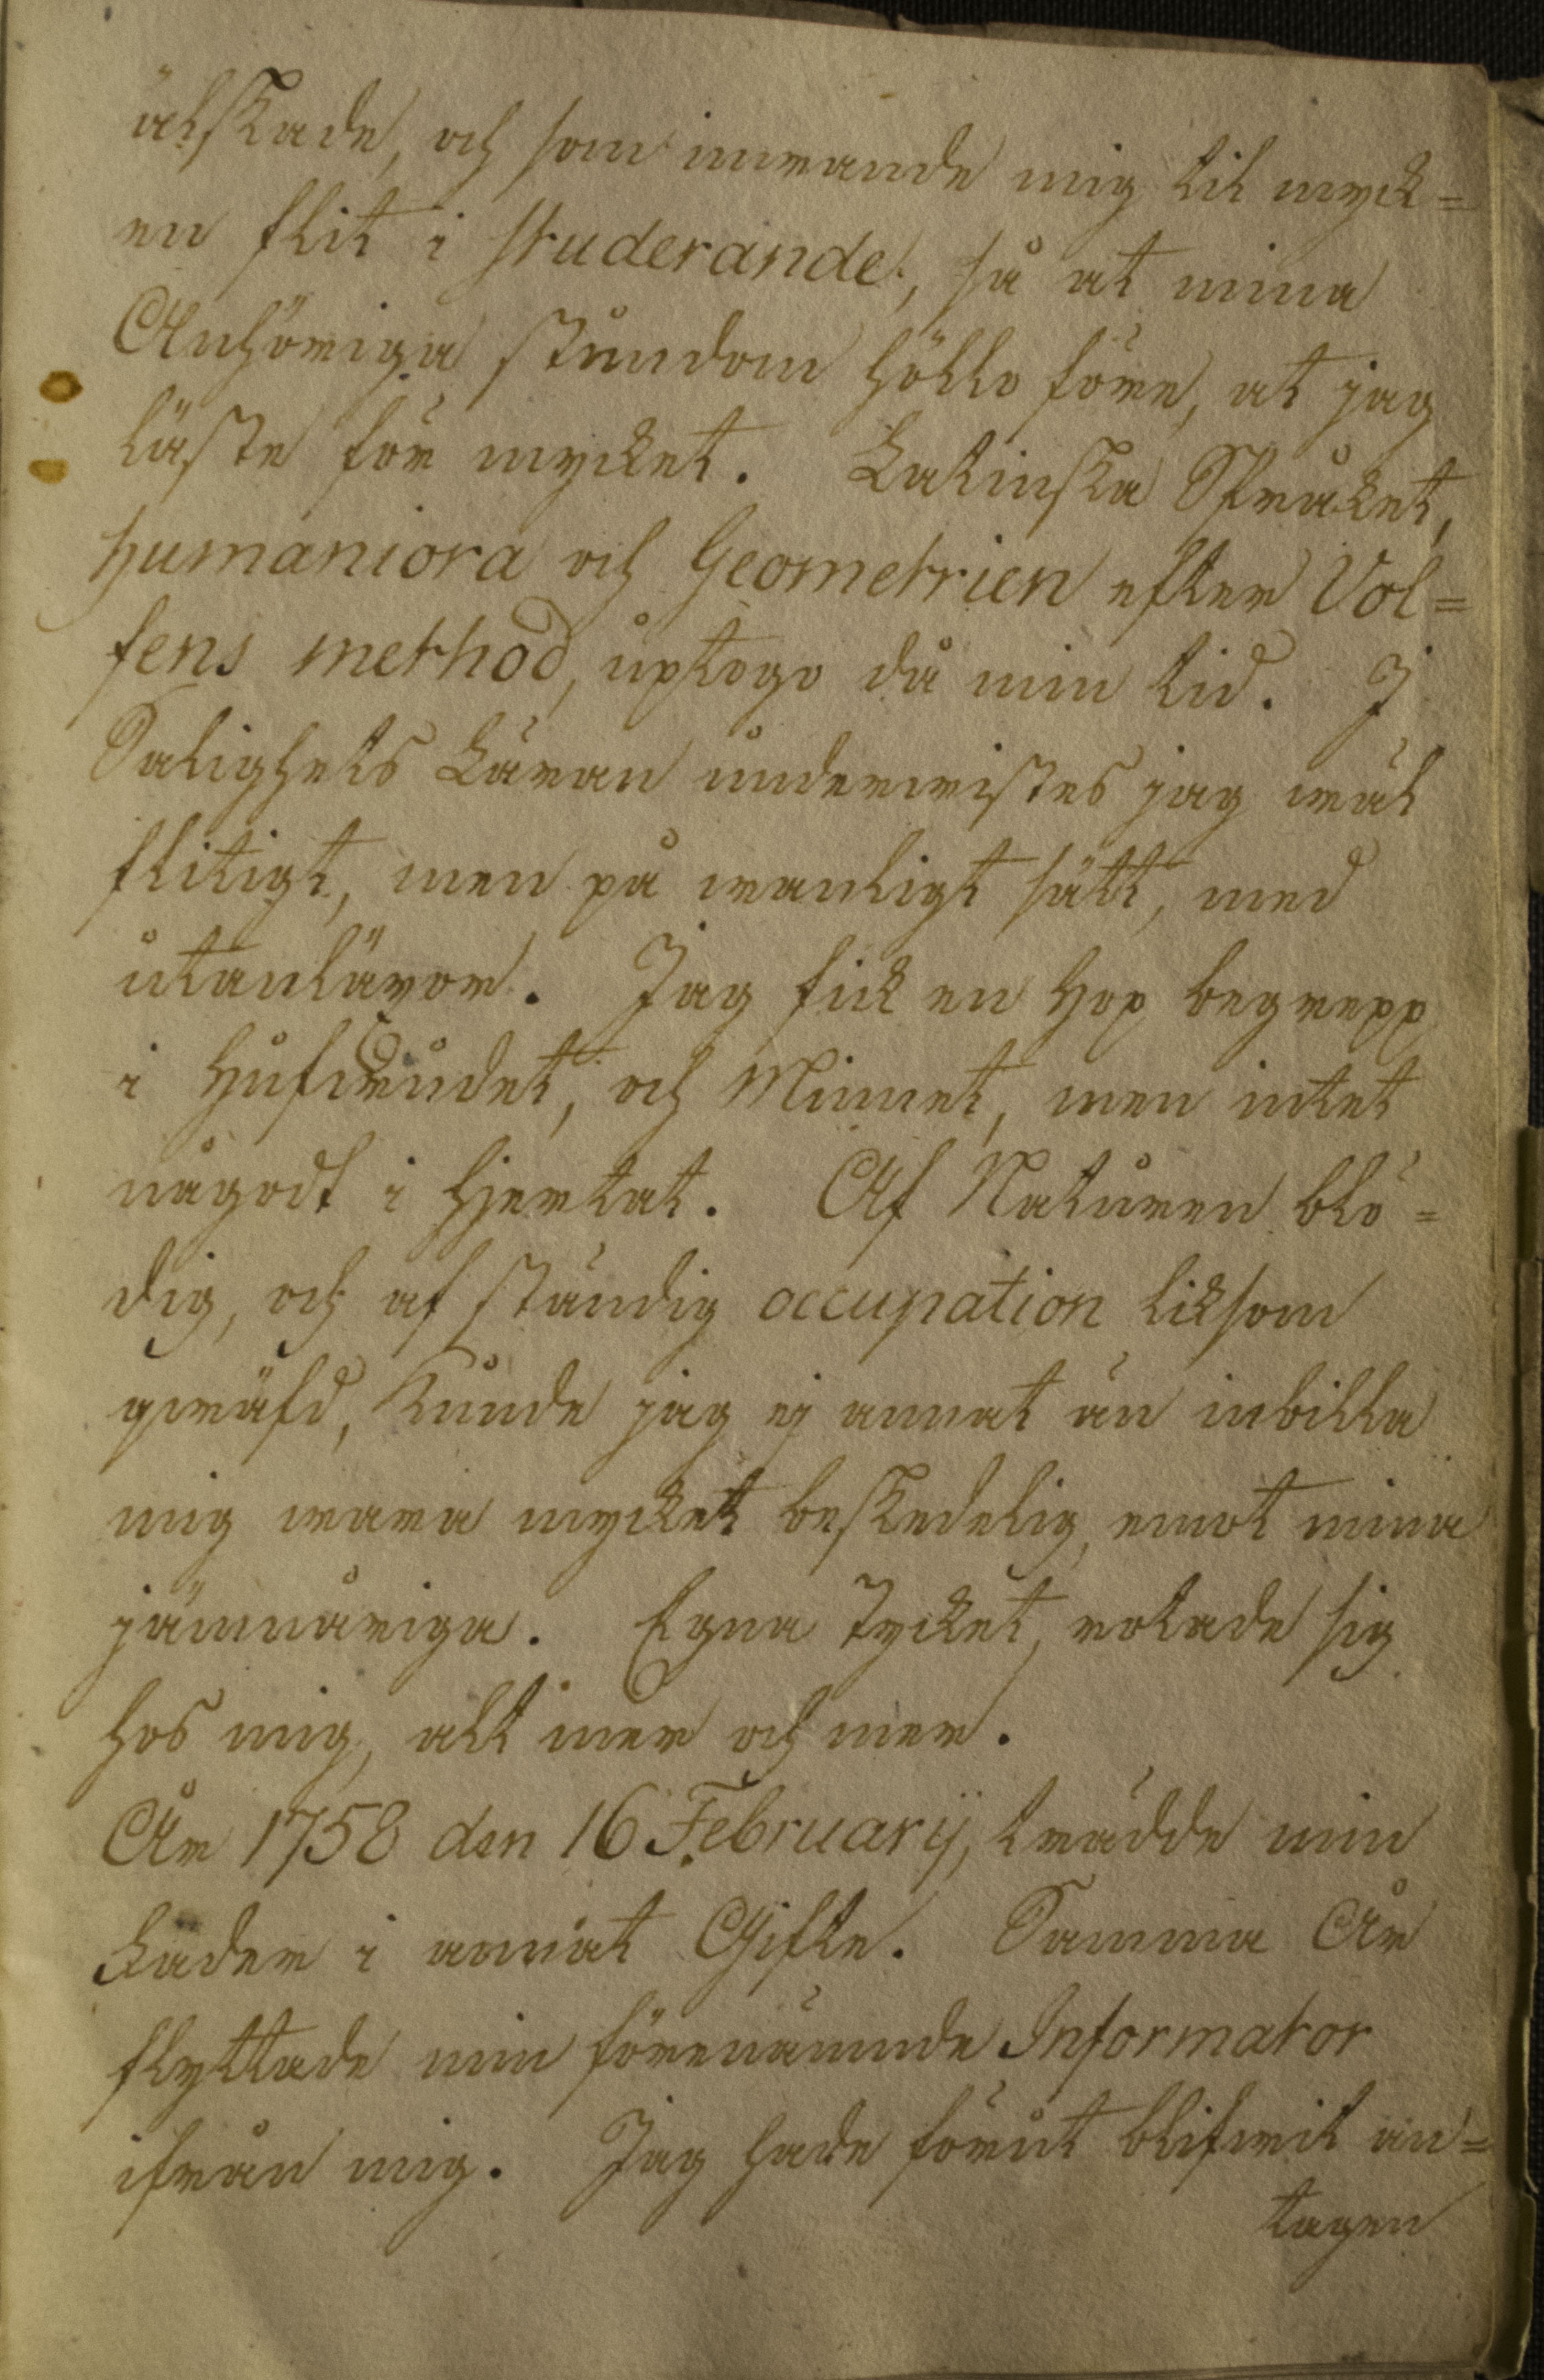 älskade, och som innande mig til myck=
en flit i studerande, så at mina
Anhöriga stundom höllo före, at jag
läste för mycket. Latinska Språket,
humaniora och Geometrien efter Vol=
fens method, uptogo då min tid. I
Salighets Läran underwistes jag wäl
flitigt, men på wanligt sätt, med
utanläxor. Jag fick en hop begrepp
i hufwudet, och Minnet, men intet
någodt i hjertat. Af Naturen blö=
dig, och af ständig occupation liksom
qwäfd, kunde jag ej annat än inbilla
mig wara mycket beskedelig, emot mina
jämnåriga. Egna Tycket, rotade sig
hos mig, alt mer och mer.
År 1758 den 16 Februarij, trädde min
Fader i annat Gifte. Samma År
flyttade min förenämnde Informator
ifrån mig. Jag hade förut blifwit an=
tagen